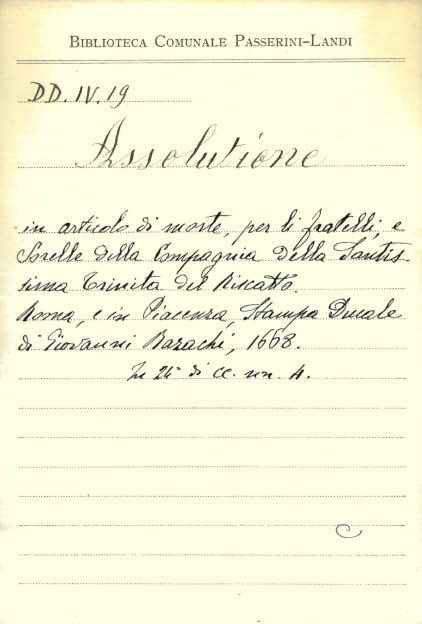 BIBLIOTECA COMUNALE PASSERINI-LANDI
DD.IV.19
Assolutione
in articolo di morte, per li fratelli, e
Sorelle della Compagnia della Santis-
sima Trinita del Riscatto.
Roma, e in Piacenza, Stampa Ducale
di Giovanni Bazachi, 1668.
In 24° di cc. nn. 4.